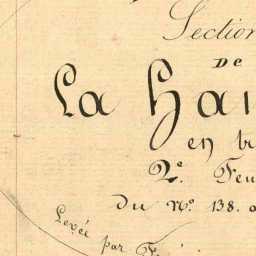 Section
DE
La Hau
en tr
2e. Feu
du No. 138. a
Levée par F